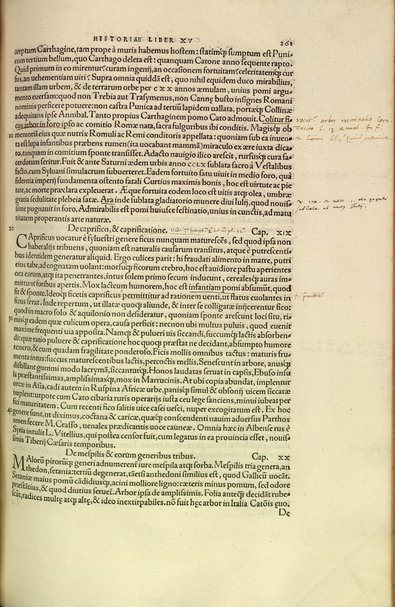 HISTORIAE LIBER XV 261
ceptum Carthagine, tam prope à muris habemus hostem: statimq; sumptum est Puni-
cum tertium bellum, quo Carthago deleta est: quanquam Catone anno sequente rapto.
Quid primum in eo miremur? curam ingenij, an occasionem fortuitam? celeritatemq; cur
sus, an uehementiam uiri? Supra omnia quiddã est, quo nihil equidem duco mirabilius,
tantam illam urbem, & de terrarum orbe per cxx annos æmulam, unius pomi argu-
mento euersam: quod non Trebia aut Trasymenus, non Cannę busto insignes Romani
nominis perficere potuere: non castra Punica ad tertiũ lapidem uallata, portæq; Collinæ
adequitans ipse Annibal. Tanto propius Carthaginem pomo Cato admouit. Colitur fi-
cus arbor in foro ipso ac comitio Romæ nata, sacra fulguribus ibi conditis. Magisq; ob
memoriã eius quæ nutrix Romuli ac Remi conditoris appellata: quoniam sub ea inuen-
ta est lupa infantibus præbens rumen (ita uocabant mammã) miraculo ex ære iuxta dica-
to, tanquam in comitium sponte transisset. Adacto nauigio illico arescit, rursusq; cura sa-
cerdotum seritur. Fuit & ante Saturni ædem urbis anno sublata sacro à Vestalibus
facto, cum Syluani simulacrum subuerteret. Eadem fortuito satu uiuit in medio foro, quà
sidentia imperij fundamenta ostento fatali Curtius maximis bonis, hoc est uirtute ac pie
tate, ac morte præclara expleuerat. Æque fortuita eodem loco est uitis atq; olea, umbræ
gratia sedulitate plebeia satæ. Ara inde sublata gladiatorio munere diui Iulij, quod nouis-
sime pugnauit in foro, Admirabilis est pomi huiusce festinatio, unius in cunctis, ad matu
ritatem properantis arte naturæ.
De caprifico, & caprificatione. Cap. XIX
20 CAprificus uocatur è syluestri genere ficus nunquam maturescẽs, sed quod ipsa non
habet alijs tribuens, quoniam est naturalis causarum transitus, atque è putrescenti-
bus identidem generatur aliquid. Ergo culices parit: hi fraudati alimento in matre, putri
eius tabe, ad cognatam uolant: morsuq; ficorum crebro, hoc est auidiore pastu aperientes
ora earum, atq; ita penetrantes, intus solem primo secum inducunt, cerealesq; auras im-
mittunt foribus apertis. Mox lacteum humorem, hoc est infantiam pomi absumũt, quod
fit & sponte. Ideoq; ficetis caprificus permittitur ad rationem uenti, ut flatus euolantes in
ficus ferat. Inde repertum, ut illatæ quoq; aliunde, & inter se colligatæ inijcerentur fico:
quod in macro solo & aquilonio non desiderant, quoniam sponte arescunt loci situ, ri-
misq; eadem quæ culicum opera, causa perficit: necnon ubi multus puluis, quod euenit
maxime frequenti uia apposita. Namq; & pulueri uis siccandi, succumq; lactis absorben-
di: quæ ratio puluere & caprificatione hoc quoq; præstat ne decidant, absumpto humore
tenero, & cum quadam fragilitate ponderoso. Ficis mollis omnibus tactus: maturis fru
menta intus: succus maturescentibus lactis, percoctis mellis. Senescunt in arbore, anusq;
distillant gummi modo lacrymã, siccanturq;. Honos laudatas seruat in capsis, Ebuso insu
la præstantissimas, amplissimasq;, mox in Marrucinis. At ubi copia abundat, implentur
orcæ in Asia, cadi autem in Ruspina Africæ urbe, panisq; simul & obsonij uicem siccatæ
implent: utpote cum Cato cibaria ruris operarijs iusta ceu lege sanciens, minui iubeat per
fici maturitatem. Cum recenti fico salitis uice casei uesci, nuper excogitatum est. Ex hoc
genere sunt, ut diximus, coctana & caricæ, quæq; conscendenti nauim aduersus Parthos
omen fecere M. Crasso, uenales prædicantis uoce cauneæ. Omnia hæc in Albense rus è
Syria intulit L. Vitellius, qui postea censor fuit, cum legatus in ea prouincia esset, nouissi-
mis Tiberij Cæsaris temporibus.
De mespilis & eorum generibus tribus. Cap. XX
MAlorũ pirorũq; generi adnumerent iure mespila atq; sorba. Mespilis tria genera, an
thedon, setania: tertiũ degenerat, tamẽ anthedoni similius est, quod Gallicũ uocãt.
Setaniæ maius pomũ cãdidiusq;, acini molliore ligno: cæteris minus pomum, sed odore
præstãtius, & quod diutius seruet. Arbor ipsa de amplissimis. Folia antequã decidãt rube-
scũt, radices multę atq; altę, & ideo inextirpabiles. nõ fuit hęc arbor in Italia Catõis æuo.
De